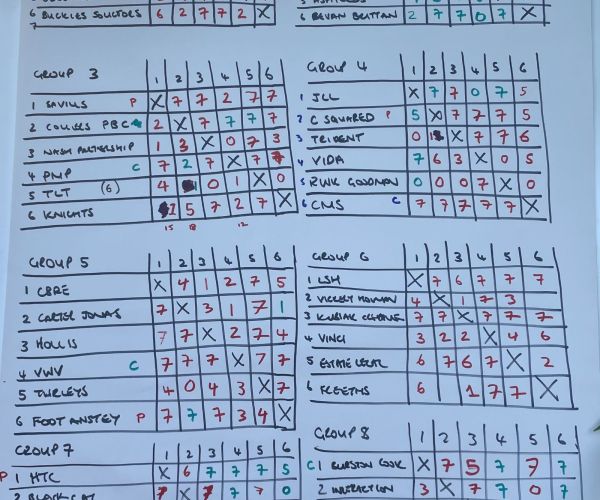 6 BUCKLES SOLICITORS 6 2 7 7 2 X
7
6 BEVAN BRITTAN 2 7 7 0 7 X
GROUP 3 1 2 3 4 5 6
1 SAVILLS P X 7 7 2 7 7
2 COLLIERS PBC 2 X 7 7 7 7
3 NASH PARTNERSHIP 1 3 X 0 7 3
4 PMP C 7 2 7 X 7 7
5 TLT (6) 4 0 1 X 0
6 KNIGHTS 1 5 7 2 7 X
15 18 12
GROUP 4 1 2 3 4 5 6
1 JLL X 7 7 0 7 5
2 C SQUARED P 5 X 7 7 7 5
3 TRIDENT 0 X 7 7 6
4 VIDA 7 6 3 X 0 5
5 RWK GOODMAN 0 0 0 7 X 0
6 CMS C 7 7 7 7 7 X
GROUP 5 1 2 3 4 5 6
1 CBRE X 4 1 2 7 5
2 CARTER JONAS 7 X 3 1 7 1
3 HOLLIS 7 7 X 2 7 4
4 VWV C 7 7 7 X 7 7
5 TURLEYS 4 0 4 3 X 7
6 FOOT ANSTEY P 7 7 7 3 4 X
GROUP 6 1 2 3 4 5 6
1 LSH X 7 6 7 7 7
2 4 X 1 7 3
3 7 7 X 7 7 7
4 VINCI 3 2 2 X 4 6
5 ESTATE LEGAL 6 7 6 7 X 2
6 FLEETHS 6 1 7 7 X
GROUP 7 1 2 3 4 5 6
P 1 HTC X 6 7 7 7 5
2 BLACK CAT 7 X 7 7 7 0
GROUP 8 1 2 3 4 5 6
C 1 BURSTON COOK X 7 5 7 7 7
2 INTERACTION 3 X 7 7 0 7